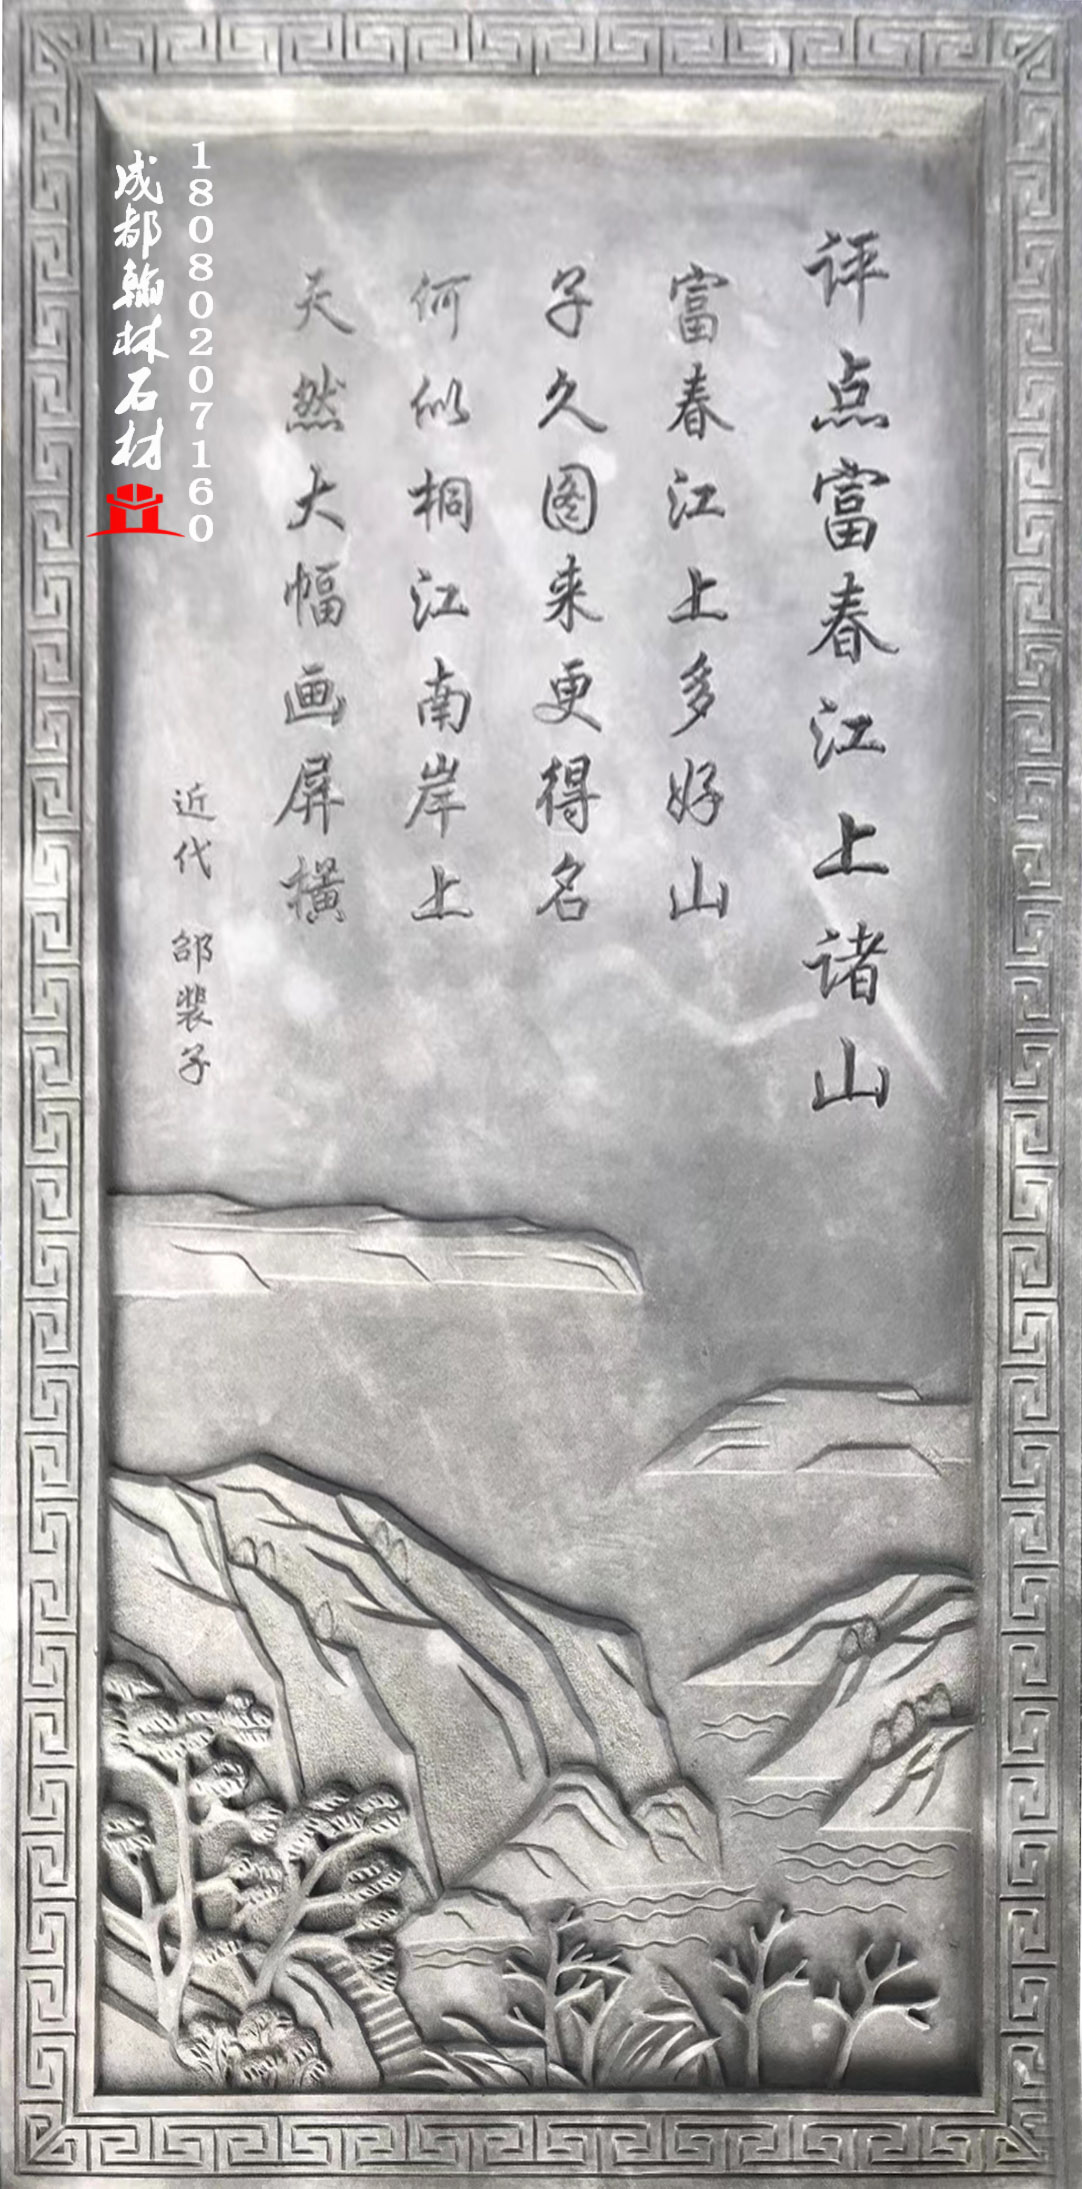 评点富春江上诸山
富春江上多好山
子久图来更得名
何似桐江南岸上
天然大幅画屏横
近代 邵裴子
18080207160
成都翰林石材